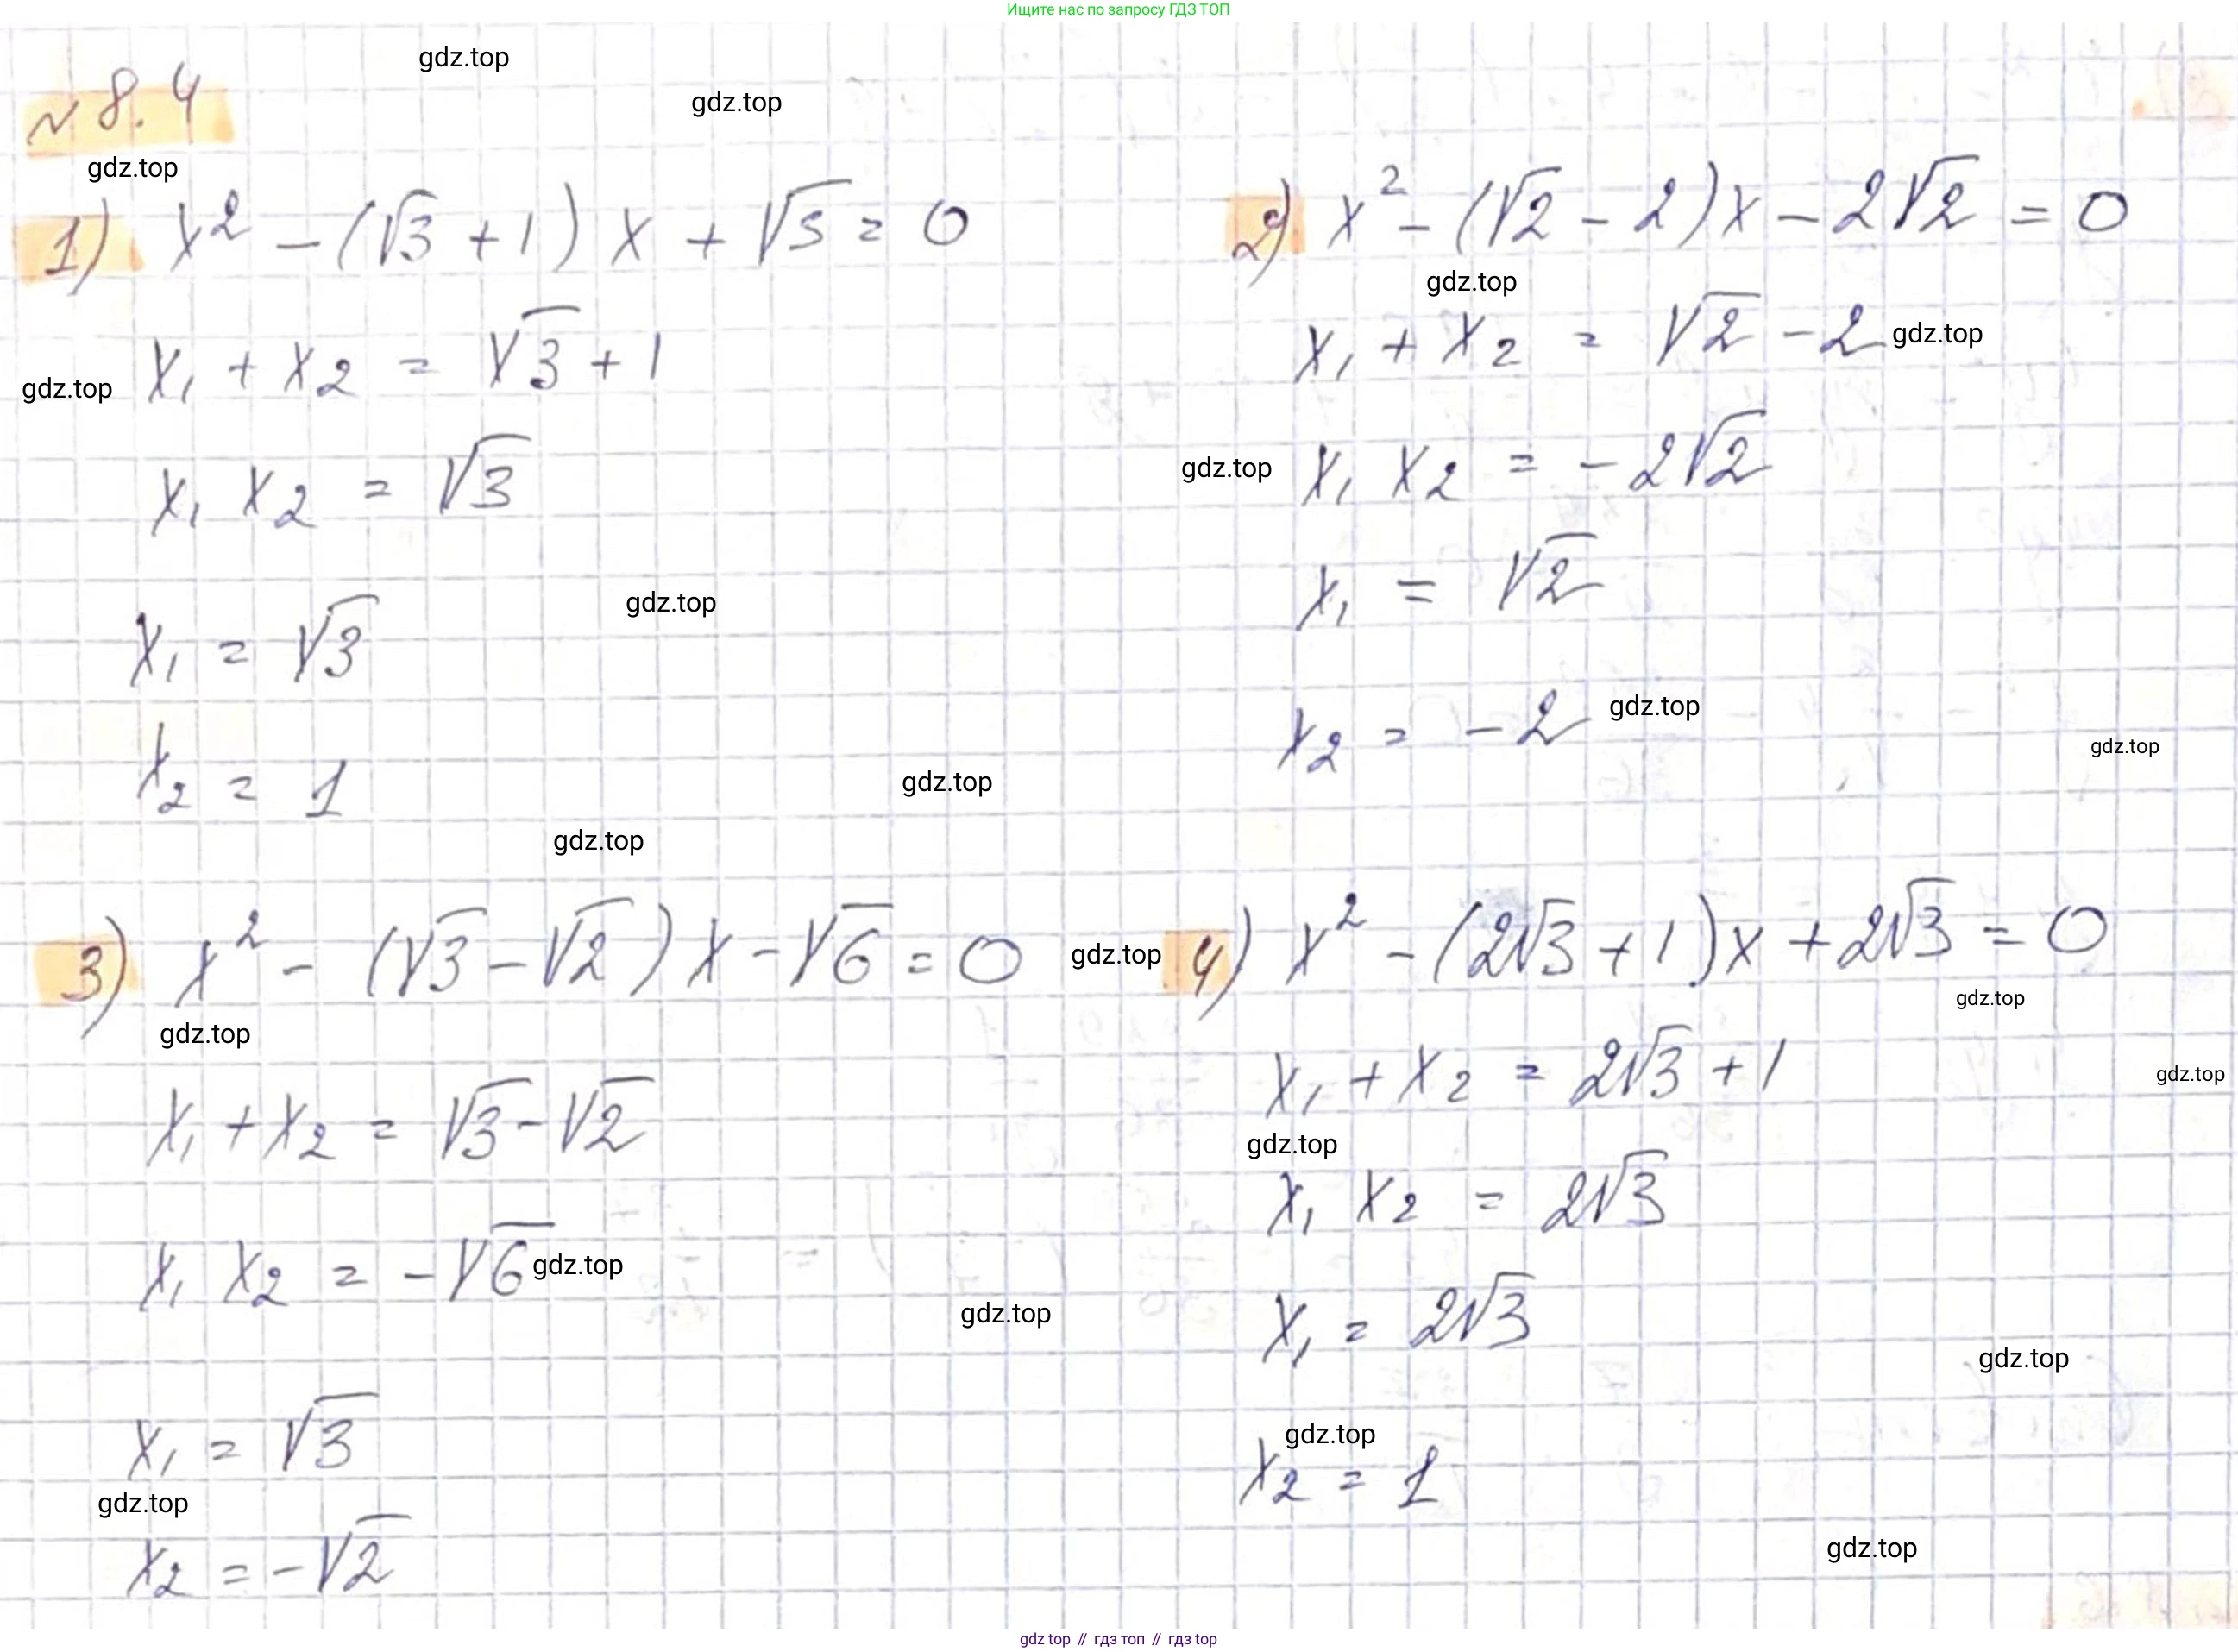 Ищите нас по запросу ГДЗ ТОП
gdz.top
gdz.top
№ 8.4
gdz.top
1) x² - (√3 + 1) x + √5 = 0
x₁ + x₂ = √3 + 1
gdz.top
x₁ x₂ = √3
x₁ = √3
gdz.top
x₂ = 1
gdz.top
gdz.top
2) x² - (√2 - 2)x - 2√2 = 0
gdz.top
x₁ + x₂ = √2 - 2
gdz.top
gdz.top
x₁ x₂ = -2√2
x₁ = √2
x₂ = -2
gdz.top
gdz.top
3) x² - (√3 - √2) x - √6 = 0
gdz.top
gdz.top
x₁ + x₂ = √3 - √2
x₁ x₂ = -√6
gdz.top
gdz.top
x₁ = √3
gdz.top
x₂ = -√2
4) x² - (2√3 + 1)x + 2√3 = 0
gdz.top
x₁ + x₂ = 2√3 + 1
gdz.top
gdz.top
x₁ x₂ = 2√3
x₁ = 2√3
gdz.top
gdz.top
x₂ = 1
gdz.top
gdz top // гдз топ // гдз top